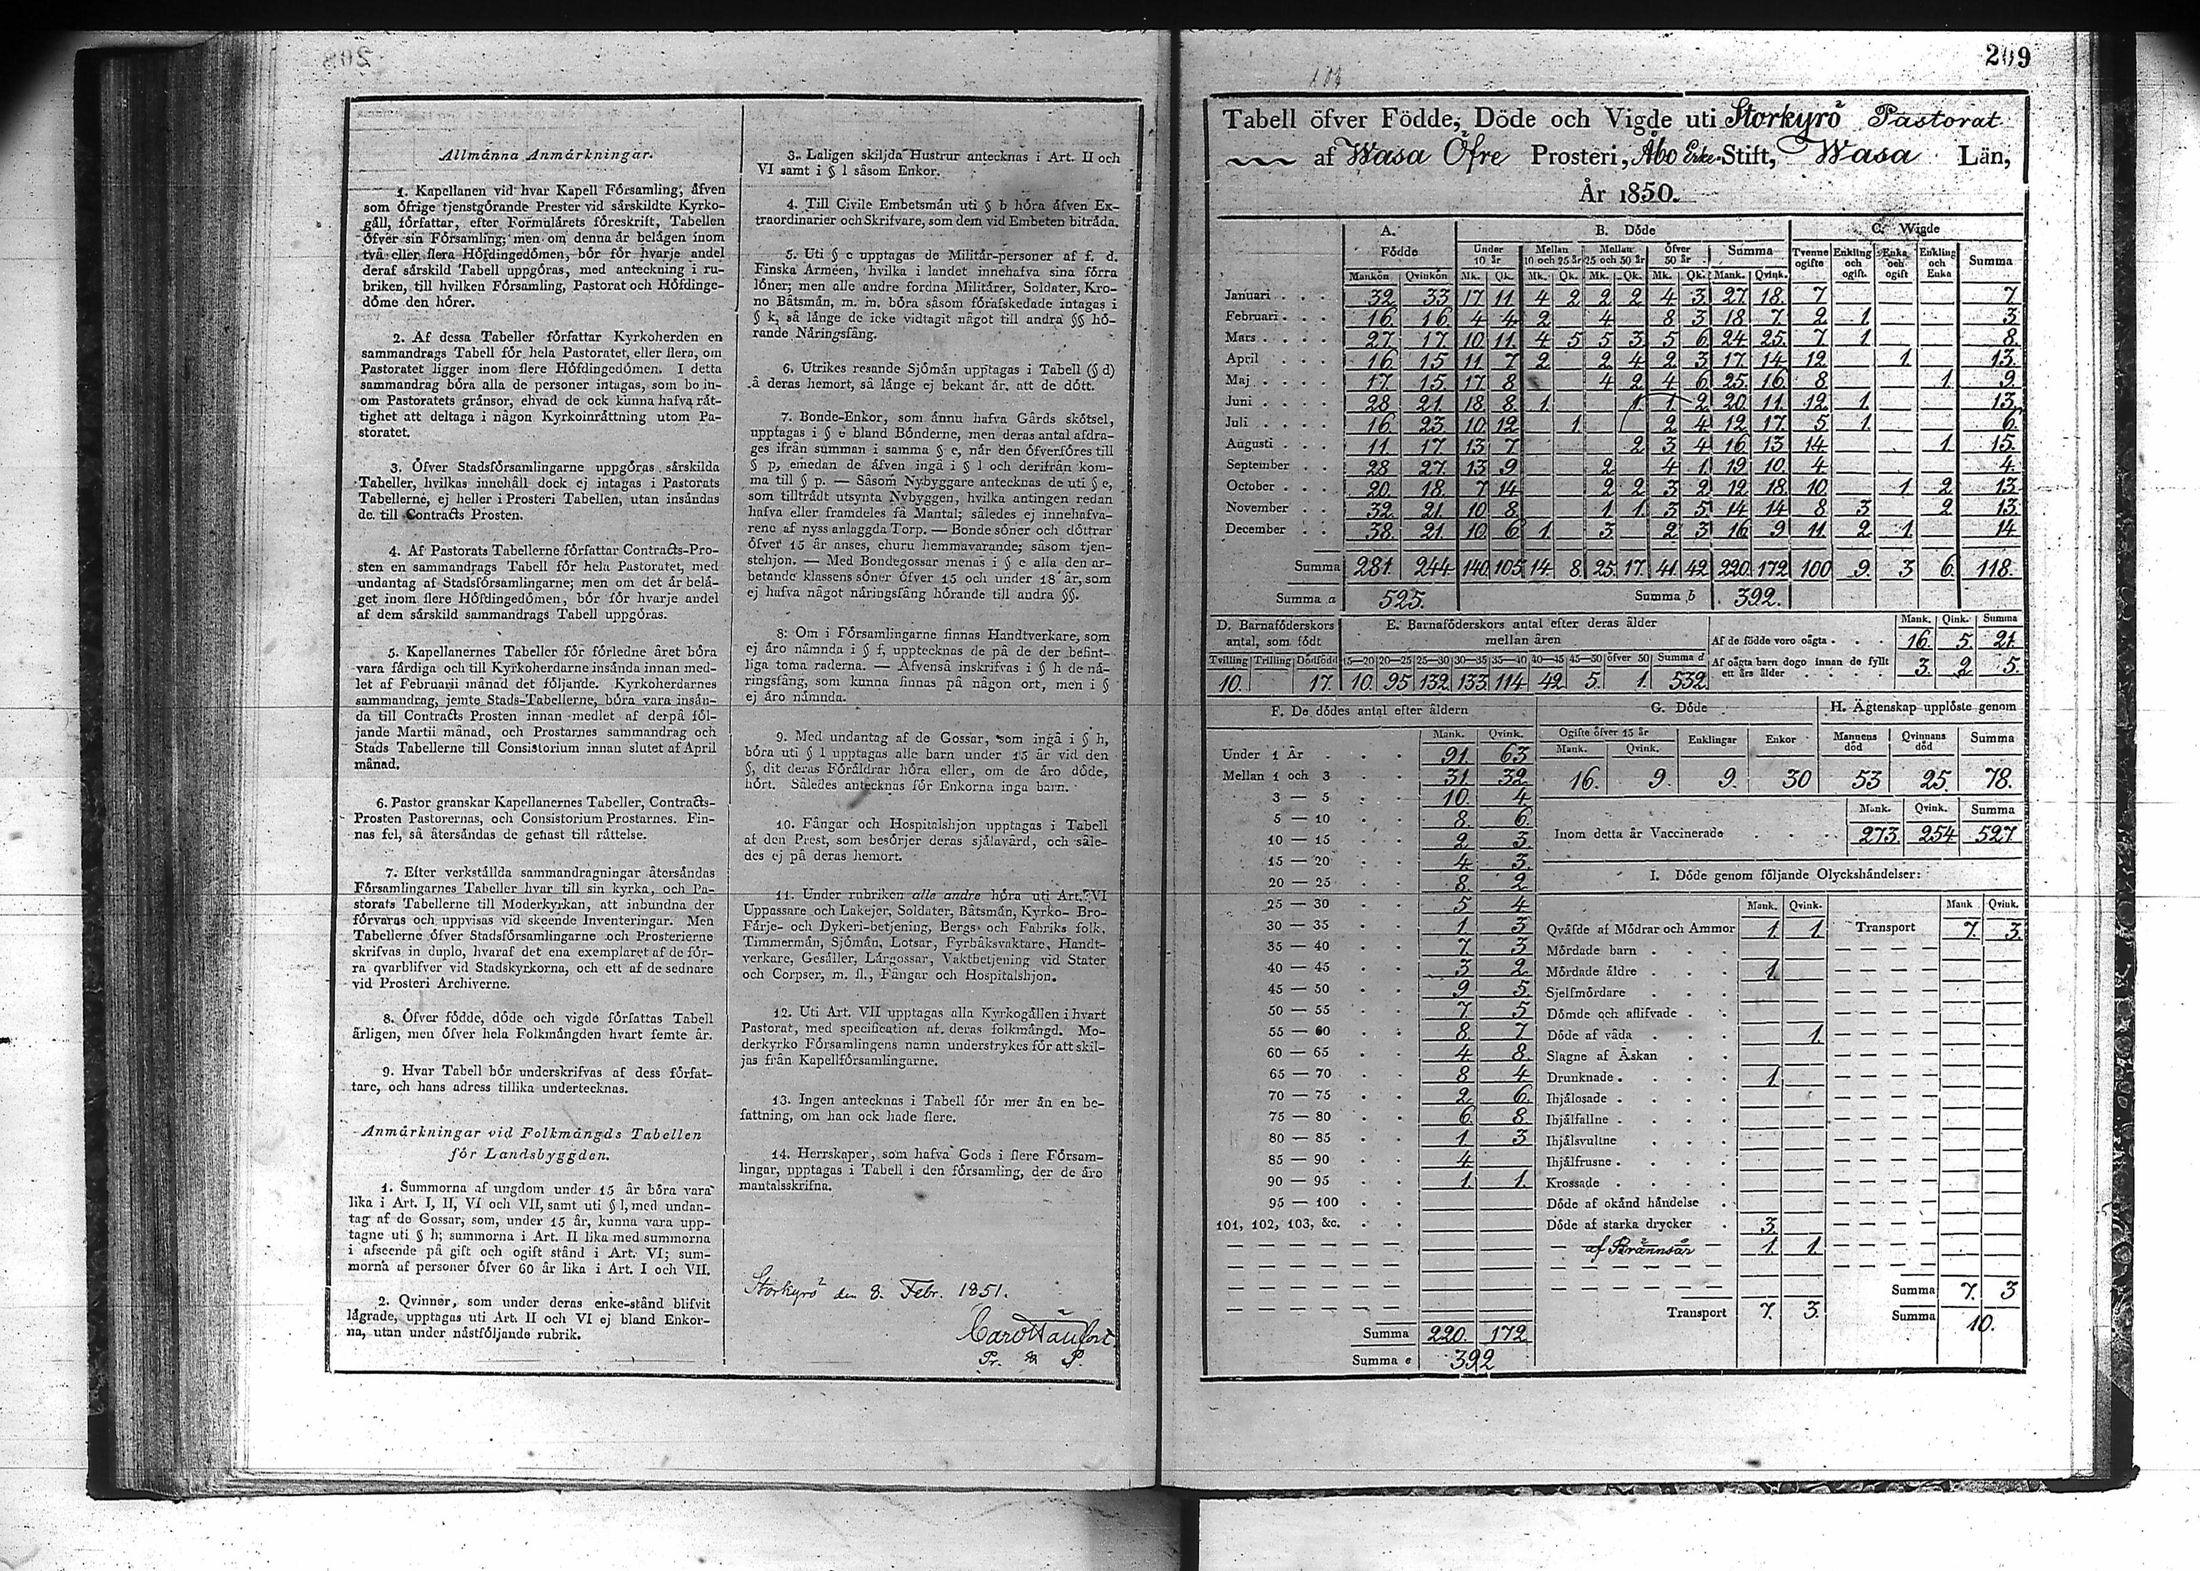 Allmånna Anmårkningar.
1. Kapellanen vid hvar Kapell Fórsamling, åfven
som ófrige tjenstgórande Prester vid sårskildte Kyrko-
gåll, fórfattar, efter Formulårets fóreskrift, Tabellen
ófver sin Fórsamling; men om denna år belågen inom
två eller flera Hófdingedómen, bór fór hvarje andel
deraf sårskild Tabell uppgóras, med anteckning i ru-
briken, till hvilken Fórsamling, Pastorat och Hófdinge-
dóme den hórer.
2. Af dessa Tabeller fórfattar Kyrkoherden en
sammandrags Tabell fór hela Pastoratet, eller flera, om
Pastoratet ligger inom flere Hófdingedómen. I detta
sammandrag bóra alla de personer intagas, som bo in-
om Pastoratets grånsor, ehvad de ock kunna hafva råt-
tighet att deltaga i någon Kyrkoinråttning utom Pa-
storatet.
3. Ófver Stadsfórsamlingarne uppgóras sårskilda
Tabeller, hvilkas innehåll dock ej intages i Pastorats
Tabellerne, ej heller i Prosteri Tabellen, utan insåndas
de till Contracts Prosten.
4. Af Pastorats Tabellerne fórfattar Contracts-Pro-
sten en sammandrags Tabell fór hela Pastoratet, med
undantag af Stadsfórsamlingarne; men om det år belå-
get inom flere Hófdingedómen, bór fór hvarje andel
af dem sårskild sammandrags Tabell uppgóras.
5. Kapellanernes Tabeller fór fórledne året bóra
vara fårdiga och till Kyrkoherdarne insånda innan med-
let af Februarii månad det fóljande. Kyrkoherdarnes
sammandrag, jemte Stads-Tabellerne, bóra vara insån-
da till Contracts Prosten innan medlet af derpå fól-
jande Martii månad, och Prostarnes sammandrag och
Stads Tabellerne till Consistorium innan slutet af April
månad.
6. Pastor granskar Kapellanernes Tabeller, Contracts-
Prosten Pastorernas, och Consistorium Prostarnes. Fin-
nas fel, så återsåndas de genast till råttelse.
7. Efter verkstållda sammandragningar återsåndas
Fórsamlingarnes Tabeller hvar till sin kyrka, och Pa-
storats Tabellerne till Moderkyrkan, att inbundna der
fórvaras och uppvisas vid skeende Inventeringar. Men
Tabellerne ófver Stadsfórsamlingarne och Prosterierne
skrifvas in duplo, hvaraf det ena exemplaret af de fór-
ra qvarblifver vid Stadskyrkorna, och ett af de sednare
vid Prosteri Archiverne.
8. Ófver fódde, dóde och vigde fórfattas Tabell
årligen, men ófver hela Folkmångden hvart femte år.
9. Hvar Tabell bór underskrifvas af dess fórfat-
tare, och hans adress tillika undertecknas.
Anmårkningar vid Folkmångds Tabellen
fór Landsbyggden.
1. Summorna af ungdom under 15 år bóra vara
lika i Art. I, II, VI och VII, samt uti § l, med undan-
tag af de Gossar, som, under 15 år, kunna vara upp-
tagne uti § h; summorna i Art. II lika med summorna
i afseende på gift och ogift stånd i Art. VI; sum-
morna af personer ófver 60 år lika i Art. I och VII.
2. Qvinnor, som under deras enke-stånd blifvit
lågrade, upptagas uti Art. II och VI ej bland Enkor-
na, utan under nåstfóljande rubrik.
3. Laligen skiljda Hustrur antecknas i Art. II och
VI samt i § l såsom Enkor.
4. Till Civile Embetsmån uti § b hóra åfven Ex-
traordinarier och Skrifvare, som dem vid Embeten bitråda.
5. Uti § c upptagas de Militår-personer af f. d.
Finska Armeen, hvilka i landet innehafva sina fórra
lóner; men alle andre fordna Militårer, Soldater, Kro-
no Båtsmån, m. m. bóra såsom fórafskedade intagas i
§ k, så långe de icke vidtagit något till andra §§ hó-
rande Nåringsfång.
6. Utrikes resande Sjómån upptagas i Tabell (§ d)
å deras hemort, så långe ej bekant år, att de dótt.
7. Bonde-Enkor, som ånnu hafva Gårds skótsel,
upptagas i § e bland Bónderne, men deras antal afdra-
ges ifrån summan i samma § e, når den ófverfóres till
§ p, emedan de åfven ingå i § l och derifrån kom-
ma till § p. — Såsom Nybyggare antecknas de uti § e,
som tilltrådt utsynta Nybyggen, hvilka antingen redan
hafva eller framdeles få Mantal; således ej innehafva-
rene af nyss anlaggda Torp. — Bonde sóner och dóttrar
ófver 15 år anses, churu hemmavarande; såsom tjen-
stehjon. — Med Bondegossar menas i § e alla den ar-
betande klassens sóner ófver 15 och under 18 år, som
ej hafva något nåringsfång hórande till andra §§.
8: Om i Fórsamlingarne finnas Handtverkare, som
ej åro nåmnda i § f, upptecknas de på de der befint-
liga toma raderna. — Åfvenså inskrifvas i § h de nå-
ringsfång, som kunna finnas på någon ort, men i §
ej åro nåmnda.
9. Med undantag af de Gossar, som ingå i § h,
bóra uti § l upptagas alle barn under 15 år vid den
§, dit deras Fóråldrar hóra eller, om de åro dóde,
hórt. Således antecknas fór Enkorna inga barn.
10. Fångar och Hospitalshjon upptagas i Tabell
af den Prest, som besórjer deras sjålavård, och såle-
des ej på deras hemort.
11. Under rubriken alle andre hóra uti Art. VI
Uppassare och Lakejer, Soldater, Båtsmån, Kyrko- Bro-
Fårje- och Dykeri-betjening, Bergs- och Fabriks folk,
Timmermån, Sjómån, Lotsar, Fyrbåksvaktare, Handt-
verkare, Gesåller, Lårgossar, Vaktbetjening vid Stater
och Corpser, m. fl., Fångar och Hospitalshjon.
12. Uti Art. VII upptagas alla Kyrkogållen i hvart
Pastorat, med specification af deras folkmångd. Mo-
derkyrko Fórsamlingens namn understrykes fór att skil-
jas från Kapellfórsamlingarne.
13. Ingen antecknas i Tabell fór mer ån en be-
fattning, om han ock hade flere.
14. Herrskaper, som hafva Gods i flere Fórsam-
lingar, upptagas i Tabell i den fórsamling, der de åro
mantalsskrifna.
Storkyrö den 8. Febr. 1851.
Pr. & P.
209
Tabell öfver Födde, Döde och Vigde uti Storkyrö Pastorat
af Wasa Öfre Prosteri, Åbo Erke-Stift, Wasa Län,
År 1850.
A. B. Dóde C. Wigde
Fódde Under 10 år Mellan 10 och 25 år Mellan 25 och 50 år Ófver 50 år Summa Tvenne ogifte Enkling och ogift. Enka och ogift Enkling och Enka Summa
Mankön Qvinkön Mk. Qk. Mk. Qk. Mk. Qk. Mk. Qk. Mank. Qvink.
Januari 32 33 17 11 4 2 2 2 4 3 27 18 7 7
Februari 16 16 4 4 2 4 8 3 18 7 2 1 3
Mars 27 17 10 11 4 5 5 3 5 6 24 25 7 1 8
April 16 15 11 7 2 2 4 2 3 17 14 12 1 13
Maj 17 15 17 8 4 2 4 6 25 16 8 1 9
Juni 28 21 18 8 1 1 1 2 20 11 12 1 13
Juli 16 23 10 12 1 2 4 12 17 5 1 6
Augusti 11 17 13 7 2 3 4 16 13 14 1 15
September 28 27 13 9 2 4 1 19 10 4 4
October 20 18 7 14 2 2 3 2 12 18 10 1 2 13
November 32 21 10 8 1 1 3 5 14 14 8 3 2 13
December 38 21 10 6 1 3 2 3 16 9 11 2 1 14
Summa 281. 244 140 105 14 8 25 17 41 42 220 172 100 9 3 6 118
Summa a 525. Summa b 392.
D. Barnafóderskors antal, som fódt
Tvilling Trilling Dódfódt
10. 17.
E. Barnafóderskors antal efter deras ålder
mellan åren
15—20 20—25 25—30 30—35 35—40 40—45 45—50 ófver 50 Summa d
10. 95 132 133 114 42 5. 1. 532
Mank. Qink. Summa
Af de fódde voro oågta 16. 5. 21.
Af oågta barn dogo innan de fyllt ett års ålder 3. 2 5.
F. De dódes antal efter åldern
Mank. Qvink.
Under 1 År 91. 63
Mellan 1 och 3 31. 32
3 — 5 10. 4
5 — 10 8 6
10 — 15 2 3
15 — 20 4 3
20 — 25 8 2
25 — 30 5 4
30 — 35 1 3
35 — 40 7 3
40 — 45 3 2
45 — 50 9 5
50 — 55 7 5
55 — 60 8 7
60 — 65 4 8
65 — 70 8 4
70 — 75 2 6
75 — 80 6 8
80 — 85 1 3
85 — 90 4
90 — 95 1 1
95 — 100
101, 102, 103, &c.
Summa 220. 172
Summa e 392
G. Dóde
Ogifte ófver 15 år Enklingar Enkor
Mank. Qvink.
16. 9. 9. 30
H. Ägtenskap upplóste genom
Mannens dód Qvinnans dód Summa
53 25 78.
Mank. Qvink. Summa
Inom detta år Vaccinerade 273 254 527
I. Dóde genom fóljande Olyckshåndelser:
Mank. Qvink. Mank Qvink.
Qvåfde af Módrar och Ammor 1 1 Transport 7 3
Mórdade barn
Mórdade åldre 1
Sjelfmórdare
Dómde och aflifvade
Dóde af våda 1
Slagne af Åskan
Drunknade 1
Ihjålosade
Ihjålfallne
Ihjålsvultne
Ihjålfrusne
Krossade
Dóde af okånd håndelse
Dóde af starka drycker 3
af Brännsår 1 1
Summa 7. 3
Transport 7. 3. Summa 10.